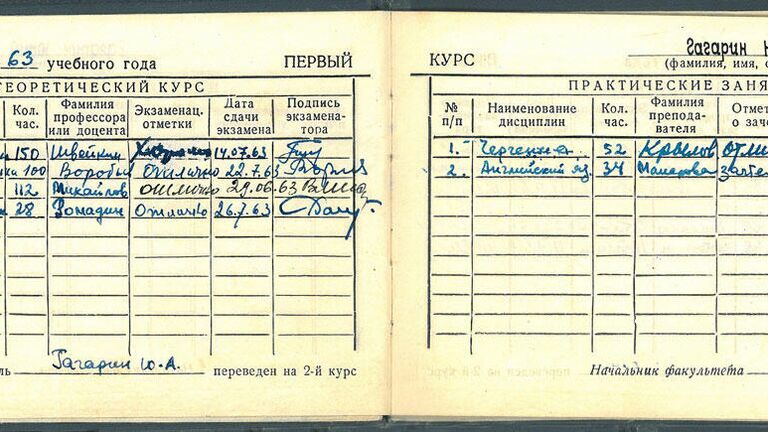 63 учебного года ПЕРВЫЙ
ТЕОРЕТИЧЕСКИЙ КУРС
Кол. час. Фамилия профессора или доцента Экзаменац. отметки Дата сдачи экзамена Подпись экзамена-тора
150 Швейкин 14.07.63
100 отлично 22.7.63
112 Михайлов отлично 29.06.63
28 Ромадин Отлично 26.7.63
Гагарин Ю.А. переведен на 2-й курс
КУРС Гагарин
(фамилия, имя, о
ПРАКТИЧЕСКИЕ ЗАНЯ
№ п/п Наименование дисциплин Кол. час. Фамилия препода-вателя Отмет о заче
1. Черчение 52 Крылов отли
2. Английский яз. 34 Макарова заче
Начальник факультета